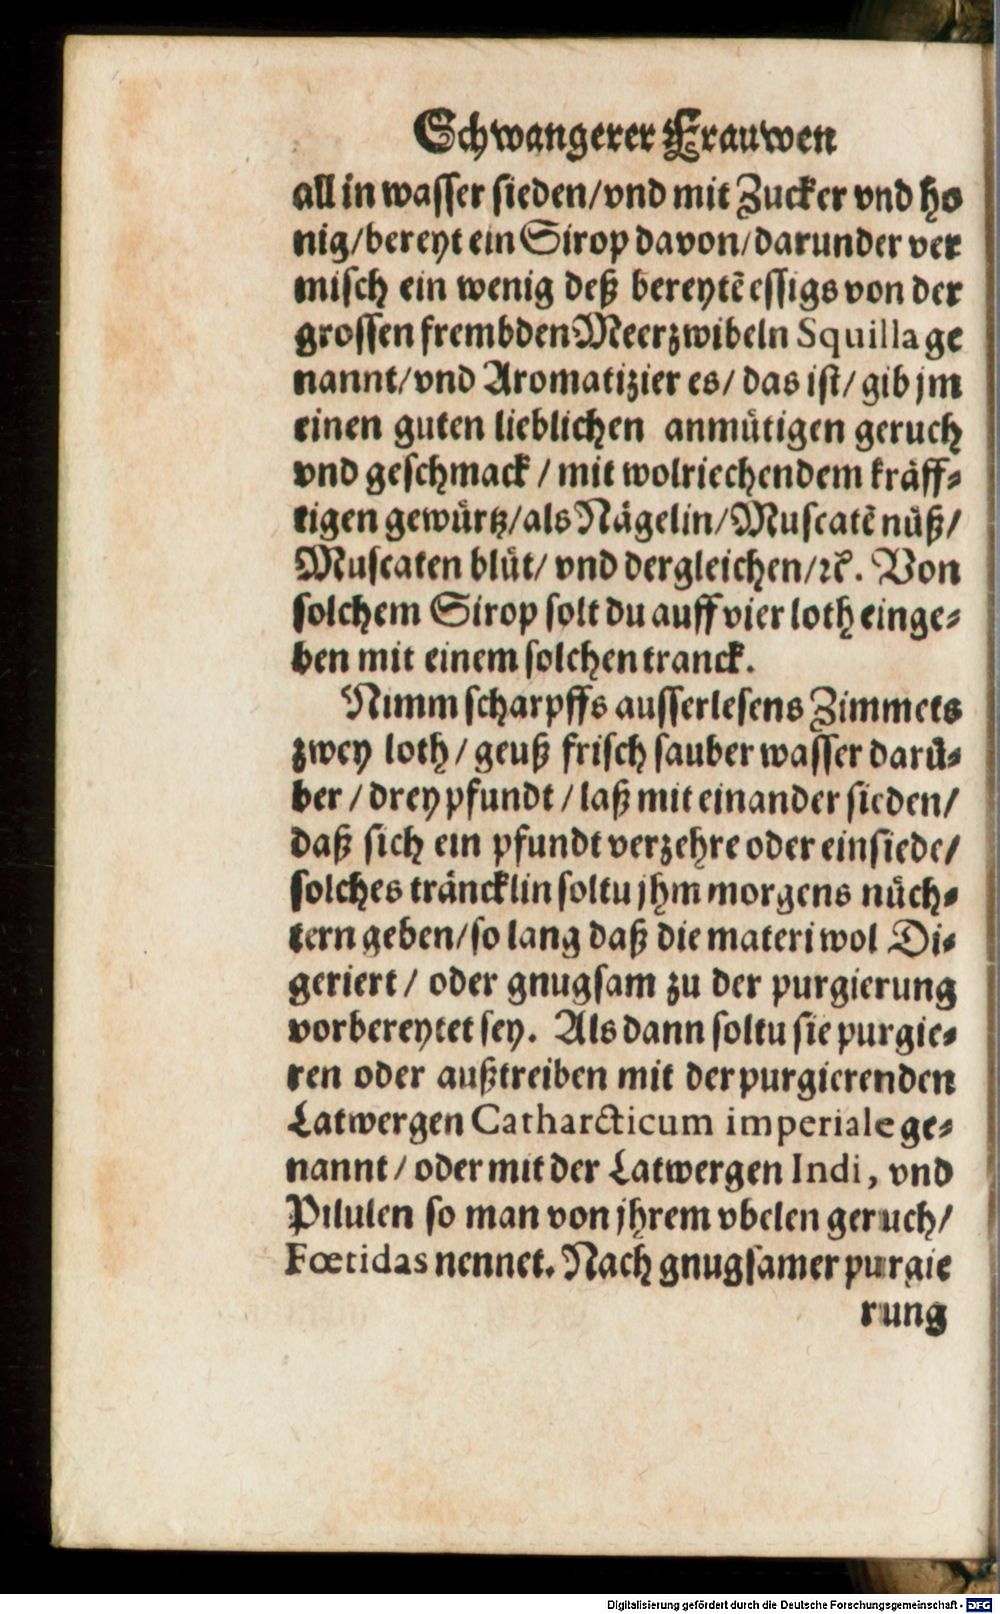 Schwangerer Frauwen
all in wasser sieden/vnd mit Zucker vnd ho
nig/bereyt ein Sirop davon/darunder ver
misch ein wenig deß bereytẽ essigs von der
grossen frembden Meerzwibeln Squilla ge
nannt/vnd Aromatizier es/ das ist/ gib jm
einen guten lieblichen anmuͤtigen geruch
vnd geschmack / mit wolriechendem kraͤff⸗
tigen gewuͤrtz/als Naͤgelin/Muscatẽ nuͤß/
Muscaten bluͤt/ vnd dergleichen/ꝛc̃. Von
solchem Sirop solt du auff vier loth einge⸗
ben mit einem solchen tranck.
Nimm scharpffs ausserlesens Zimmets
zwey loth / geuß frisch sauber wasser daruͤ⸗
ber / drey pfundt / laß mit einander sieden/
daß sich ein pfundt verzehre oder einsiede/
solches traͤncklin soltu jhm morgens nuͤch⸗
tern geben/so lang daß die materi wol Di⸗
geriert / oder gnugsam zu der purgierung
vorbereytet sey. Als dann soltu sie purgie⸗
ren oder außtreiben mit der purgierenden
Latwergen Catharcticum imperiale ge⸗
nannt / oder mit der Latwergen Indi, vnd
Pilulen so man von jhrem vbelen geruch/
Fœtidas nennet. Nach gnugsamer purgie
rung
Digitalisierung gefördert durch die Deutsche Forschungsgemeinschaft - DFG